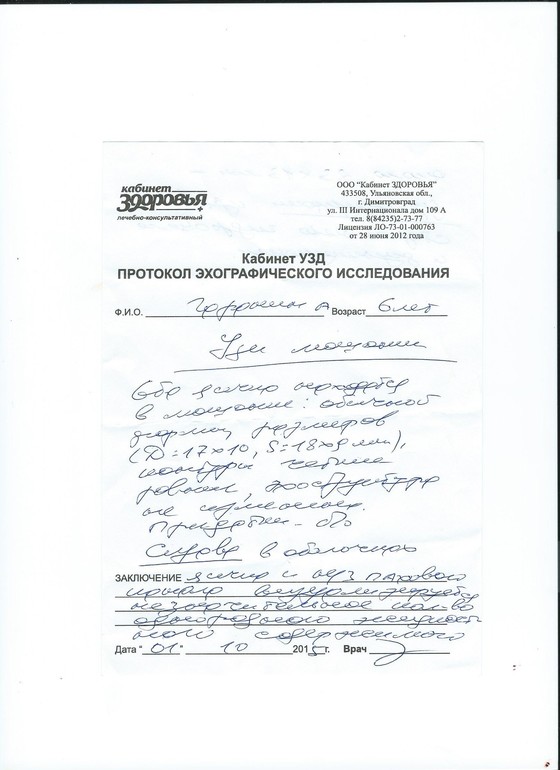 кабинет
здоровья
лечебно-консультативный
ООО "Кабинет ЗДОРОВЬЯ"
433508, Ульяновская обл.,
г. Димитровград
ул. III Интернационала дом 109 А
тел. 8(84235)2-73-77
Лицензия ЛО-73-01-000763
от 28 июня 2012 года
Кабинет УЗД
ПРОТОКОЛ ЭХОГРАФИЧЕСКОГО ИССЛЕДОВАНИЯ
Ф.И.О. А Возраст 6 лет
Узи мошонки
Оба яичка находятся
в мошонке: обычной
формы, размеров
(D=17х10, S=18х9 мм),
контуры четкие
ровные, эхоструктура
не изменена.
Придатки - б/о
Справа в оболочках
ЗАКЛЮЧЕНИЕ яичка и пахового
канала визуализируется
незначительное кол-во
однородного жидкост
ного содержимого
Дата "01" 10 2015г. Врач